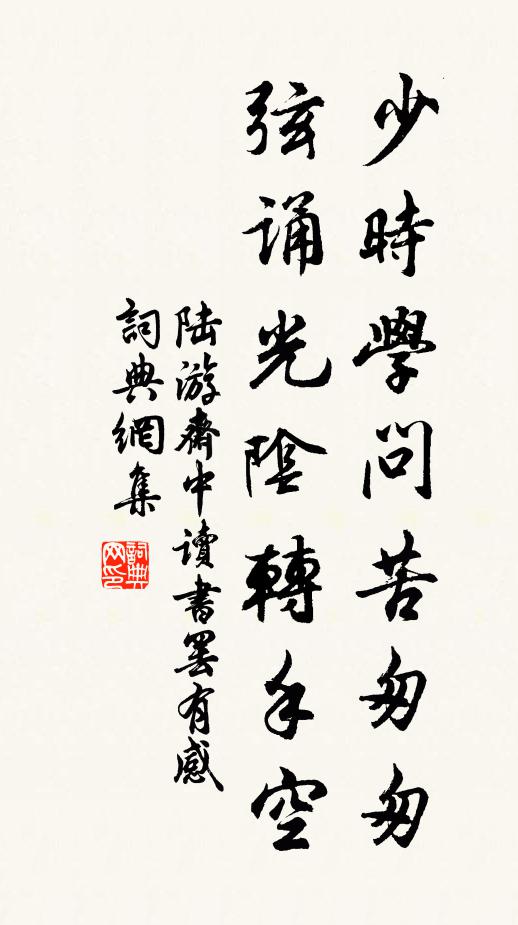 少時學問苦匆匆
弦誦光陰轉手空
陆游齋中讀書罢有感
詞典網集
詞典网印